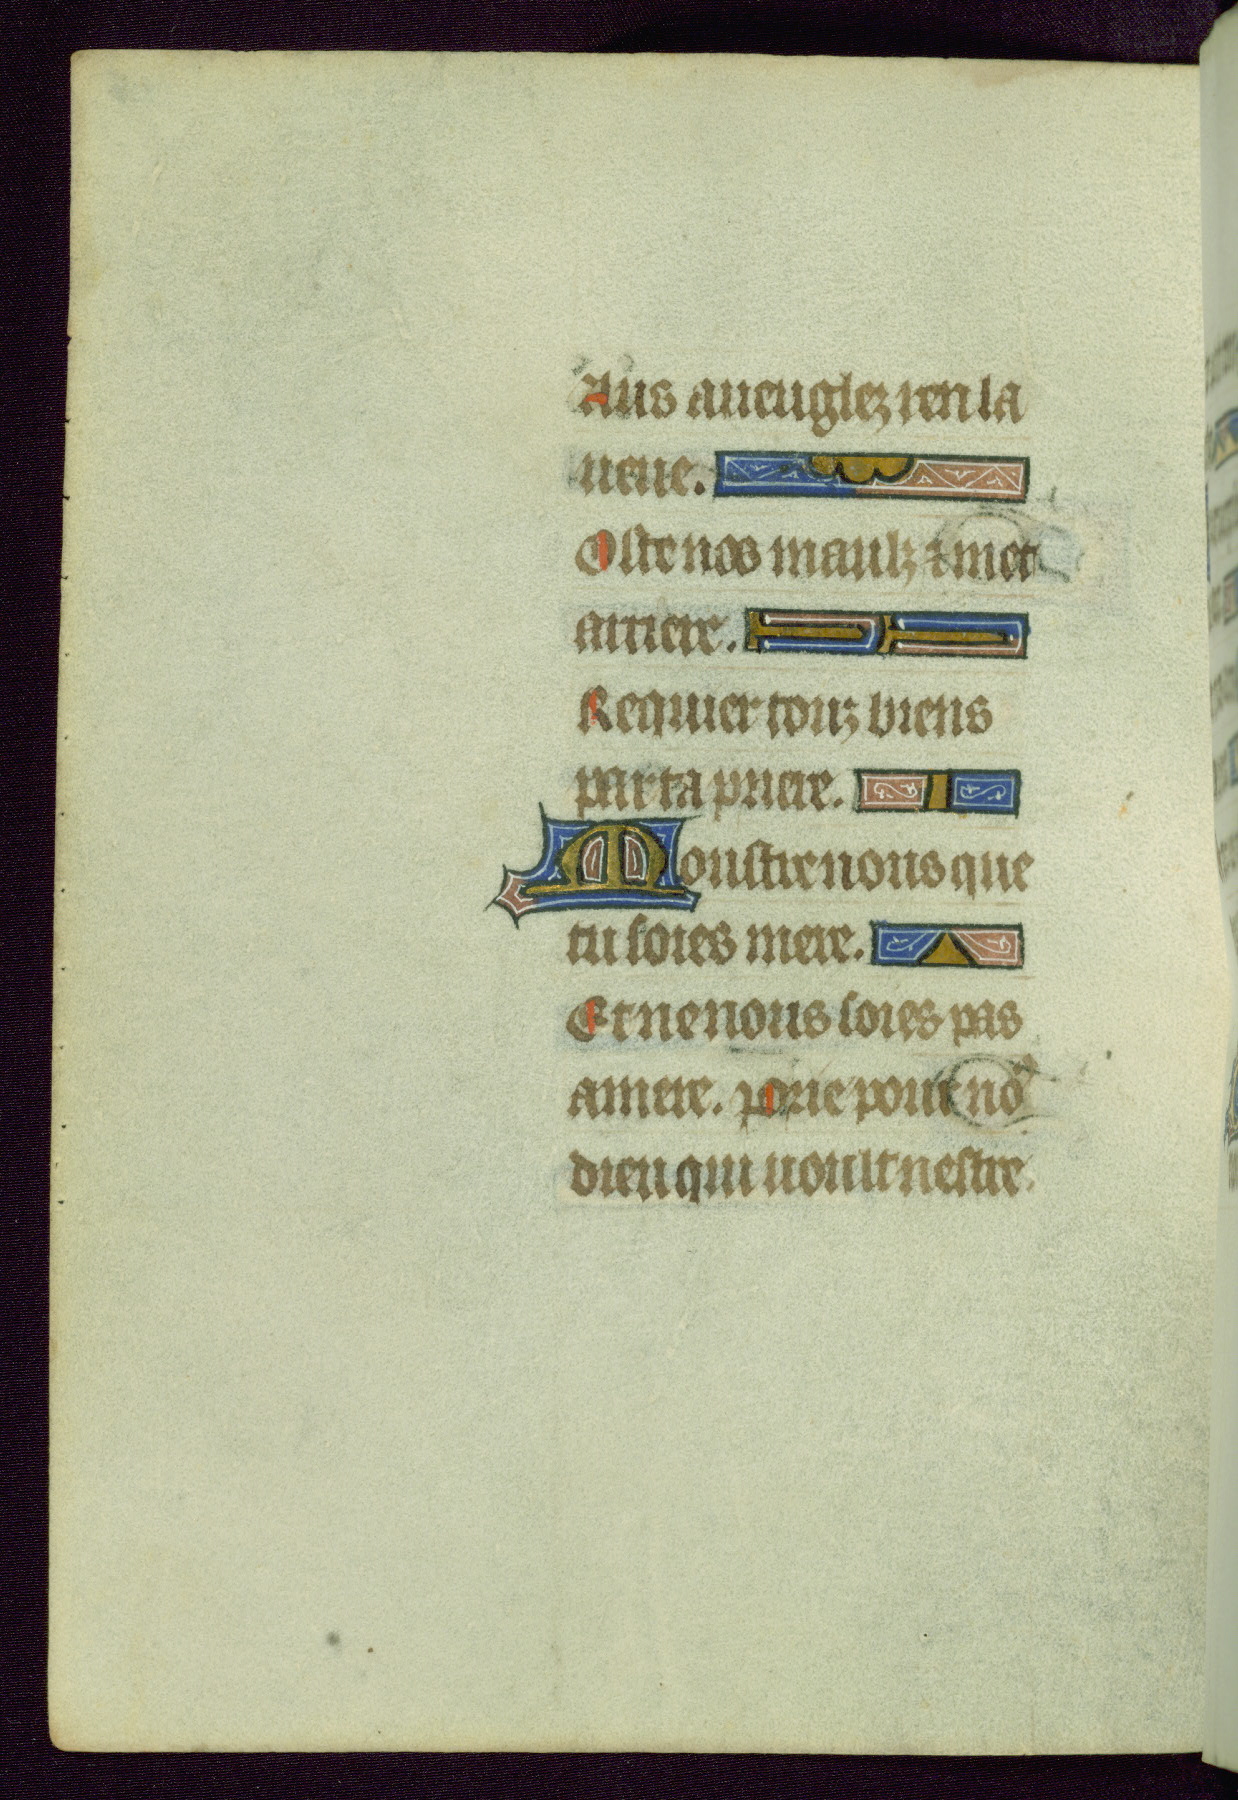 Aus aueuglez ren la
ueue.
Oste nos maulz ⁊ met
arriere.
Requier touz biens
par ta priere.
Monstre nous que
tu soies mere.
Et ne nous soies pas
amere. Prie pour no9
dieu qui uoult nestre.